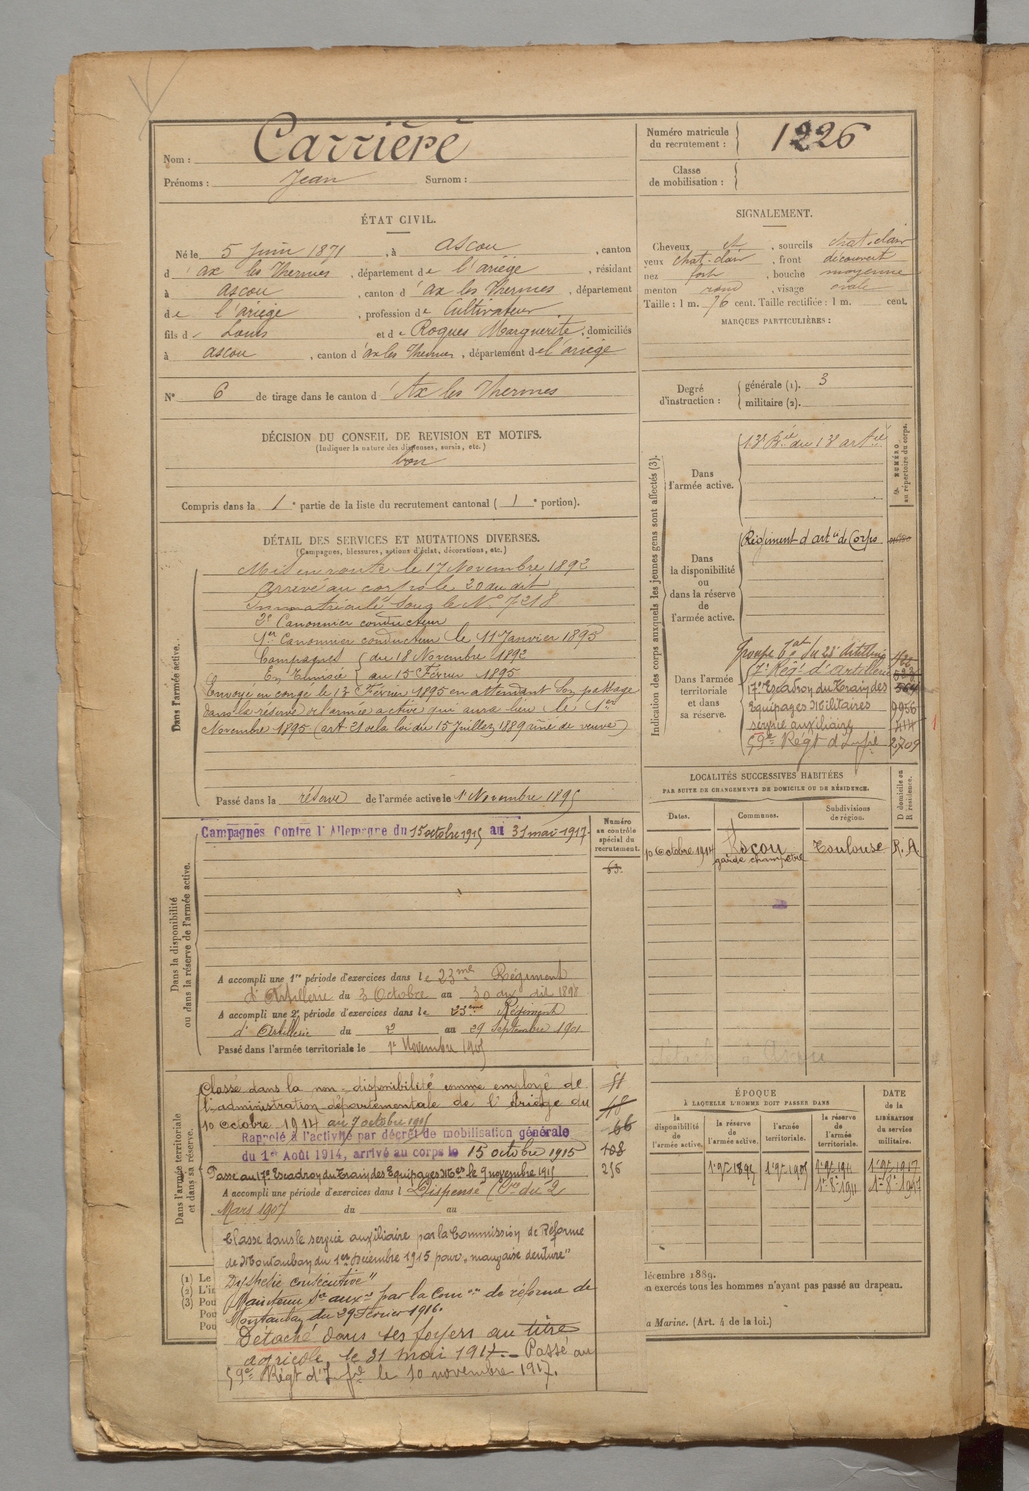 Nom : Carrière
Prénoms : Jean Surnom :
Numéro matricule du recrutement : 1226
Classe de mobilisation :
ÉTAT CIVIL.
Né le 5 Juin 1871, à Ascou, canton
d'ax les Thermes, département de l'ariège, résidant
à ascou, canton d'ax les Thermes, département
de l'ariège, profession de Cultivateur
fils de Louis et de Roques Marguerite, domiciliés
à ascou, canton d'ax les Thermes, département de l'ariège
N° 6 de tirage dans le canton d'Ax les Thermes
SIGNALEMENT.
Cheveux et, sourcils chat-clair
yeux chat-clair, front découvert
nez fort, bouche moyenne
menton rond, visage ovale
Taille : 1 m. 76 cent. Taille rectifiée : 1 m. cent.
MARQUES PARTICULIÈRES :
Degré d'instruction : générale (1). 3
militaire (2).
DÉCISION DU CONSEIL DE REVISION ET MOTIFS.
(Indiquer la nature des dispenses, sursis, etc.)
bon
Compris dans la 1e partie de la liste du recrutement cantonal (1e portion).
DÉTAIL DES SERVICES ET MUTATIONS DIVERSES.
(Campagnes, blessures, actions d'éclat, décorations, etc.)
Dans l'armée active.
Mis en route le 17 Novembre 1892
Arrivé au corps le 20 du dit
Immatriculé sous le N° 7218
2e Canonnier conducteur
1er Canonnier conducteur le 11 Janvier 1895
Campagnes { du 18 Novembre 1892
En Tunisie { au 15 Février 1895
Envoyé en congé le 13 Février 1895 en attendant son passage
dans la réserve de l'armée active qui aura lieu le 1er
Novembre 1895 (art 21 de la loi du 15 Juillet 1889 aîné de veuve)
Passé dans la réserve de l'armée active le 1r Novembre 1895
Indication des corps auxquels les jeunes gens sont affectés (3).
NUMÉRO au répertoire du corps.
Dans l'armée active.
13e Bie du 13e artie
Dans la disponibilité ou dans la réserve de l'armée active.
Régiment d'artie de Corps
Dans l'armée territoriale et dans sa réserve.
Groupe tal du 23e Artillerie
Régt d'Artillerie
17e Escadron du Train des 564
Equipages Militaires 9956
service auxiliaire
59e Régt d'Infie 2,709
LOCALITÉS SUCCESSIVES HABITÉES
PAR SUITE DE CHANGEMENTS DE DOMICILE OU DE RÉSIDENCE.
Dates. Communes. Subdivisions de région. D domicile ou R résidence.
10 Octobre 1914 Ascou Toulouse R. A
garde champêtre
Dans la disponibilité ou dans la réserve de l'armée active.
Numéro au contrôle spécial du recrutement.
63.
Campagnes Contre l'Allemagne du 15 octobre 1915 au 31 mai 1917
A accompli une 1re période d'exercices dans le 23me Régiment
d'Artillerie du 3 Octobre au 30 du dit 1898
A accompli une 2e période d'exercices dans le 23ème Régiment
d'Artillerie du 2 au 29 Septembre 1901
Passé dans l'armée territoriale le 1r Novembre 1905
Dans l'armée territoriale et dans sa réserve.
Classé dans la non-disponibilité comme employé de
l'administration départementale de l'Ariège du
10 octobre 1914 au 7 octobre 1915
Rappelé à l'activité par décret de mobilisation générale
du 1er Août 1914, arrivé au corps le 15 octobre 1915
Passé au 17e Escadron du Train des Equipages Mres le 9 novembre 1915
A accompli une période d'exercices dans l Dispensé du 2
Mars 1907 du au
51
48
66
108
256
Classé dans le service auxiliaire par la Commission de Réforme
de Montauban du 1er décembre 1915 pour "mauvaise denture"
Dyspepsie consécutive"
Maintenu Sce auxre par la Comon de réforme de
Montauban du 29 Février 1916.
Détaché dans ses foyers au titre
agricole, le 31 mai 1917. - Passé au
59e Régt d'Infie le 10 novembre 1917.
ÉPOQUE
À LAQUELLE L'HOMME DOIT PASSER DANS
la disponibilité de l'armée active. la réserve de l'armée active. l'armée territoriale. la réserve de l'armée territoriale.
DATE de la LIBÉRATION du service militaire.
1r 9bre 1895 1r 9bre 1905 1r 9bre 1911 1r 9bre 1917
1r 8bre 1911 1r 8bre 1917
(1) Le
(2) L'i
(3) Pou
Pou
Pou
décembre 1889.
on exercés tous les hommes n'ayant pas passé au drapeau.
a Marine. (Art. 4 de la loi.)